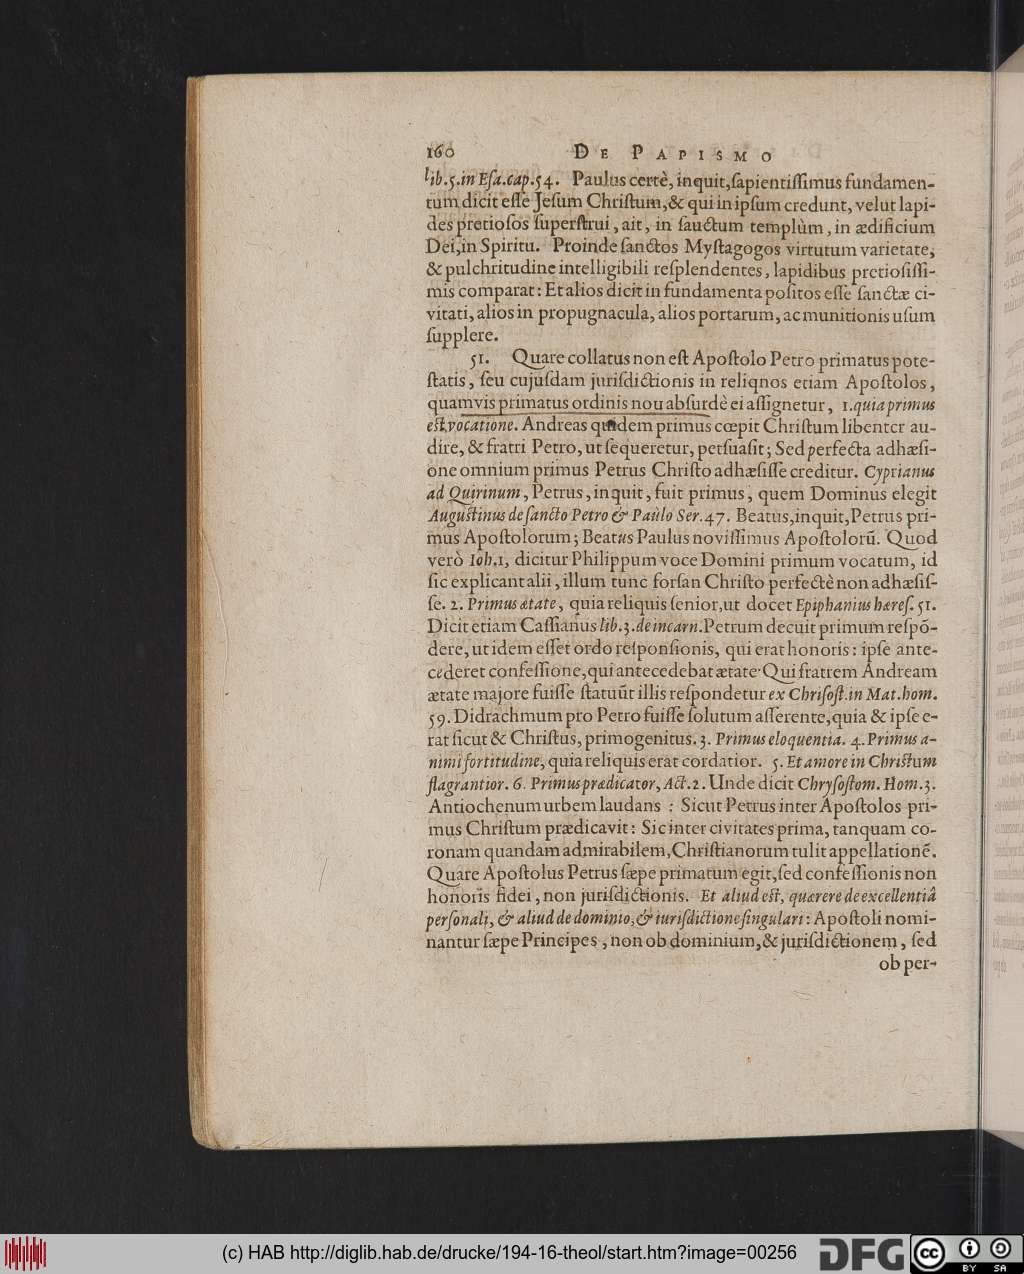 160 DE PAPISMO
lib.5.in Eſa.cap.54. Paulus certè, inquit,ſapientiſſimus fundamen-
tum dicit eſſe Jeſum Chriſtum,& qui in ipſum credunt, velut lapi-
des pretioſos ſuperſtrui, ait, in ſauctum templùm, in ædificium
Dei,in Spiritu. Proinde ſanctos Myſtagogos virtutum varietate,
& pulchritudine intelligibili reſplendentes, lapidibus pretioſiſſi-
mis comparat: Et alios dicit in fundamenta poſitos eſſe ſanctæ ci-
vitati, alios in propugnacula, alios portarum, ac munitionis uſum
ſupplere.
51. Quare collatus non eſt Apoſtolo Petro primatus pote-
ſtatis, ſeu cujuſdam juriſdictionis in reliqnos etiam Apoſtolos,
quamvis primatus ordinis nou abſurdè ei aſſignetur, 1.quia primus
eſt,vocatione. Andreas quidem primus cœpit Chriſtum libenter au-
dire, & fratri Petro, ut ſequeretur, perſuaſit; Sed perfecta adhæſi-
one omnium primus Petrus Chriſto adhæſiſſe creditur. Cyprianus
ad Quirinum, Petrus, inquit, fuit primus, quem Dominus elegit
Auguſtinus de ſancto Petro & Paulo Ser.47. Beatus,inquit,Petrus pri-
mus Apoſtolorum; Beatus Paulus noviſſimus Apoſtolorũ. Quod
verò Ioh.1, dicitur Philippum voce Domini primum vocatum, id
ſic explicant alii, illum tunc forſan Chriſto perfectè non adhæſiſ-
ſe. 2. Primus ætate, quia reliquis ſenior,ut docet Epiphanius hæreſ. 51.
Dicit etiam Caſſianus lib.3.de incarn.Petrum decuit primum reſpõ-
dere, ut idem eſſet ordo reſponſionis, qui erat honoris: ipſe ante-
cederet confeſſione,qui antecedebat ætate. Qui fratrem Andream
ætate majore fuiſſe ſtatuũt illis reſpondetur ex Chriſoſt.in Mat.hom.
59. Didrachmum pro Petro fuiſſe ſolutum aſſerente,quia & ipſe e-
rat ſicut & Chriſtus, primogenitus. 3. Primus eloquentia. 4. Primus a-
nimi fortitudine, quia reliquis erat cordatior. 5. Et amore in Chriſtum
flagrantior. 6. Primus prædicator, Act.2. Unde dicit Chryſoſtom. Hom.3.
Antiochenum urbem laudans : Sicut Petrus inter Apoſtolos pri-
mus Chriſtum prædicavit: Sic inter civitates prima, tanquam co-
ronam quandam admirabilem,Chriſtianorum tulit appellationẽ.
Quare Apoſtolus Petrus ſæpe primatum egit,ſed confeſſionis non
honoris fidei, non juriſdictionis. Et aliud eſt, quærere de excellentiâ
perſonali, & aliud de dominio,& iuriſdictione ſingulari: Apoſtoli nomi-
nantur ſæpe Principes, non ob dominium,& juriſdictionem, ſed
ob per-
(c) HAB http://diglib.hab.de/drucke/194-16-theol/start.htm?image=00256
DFG
cc BY SA